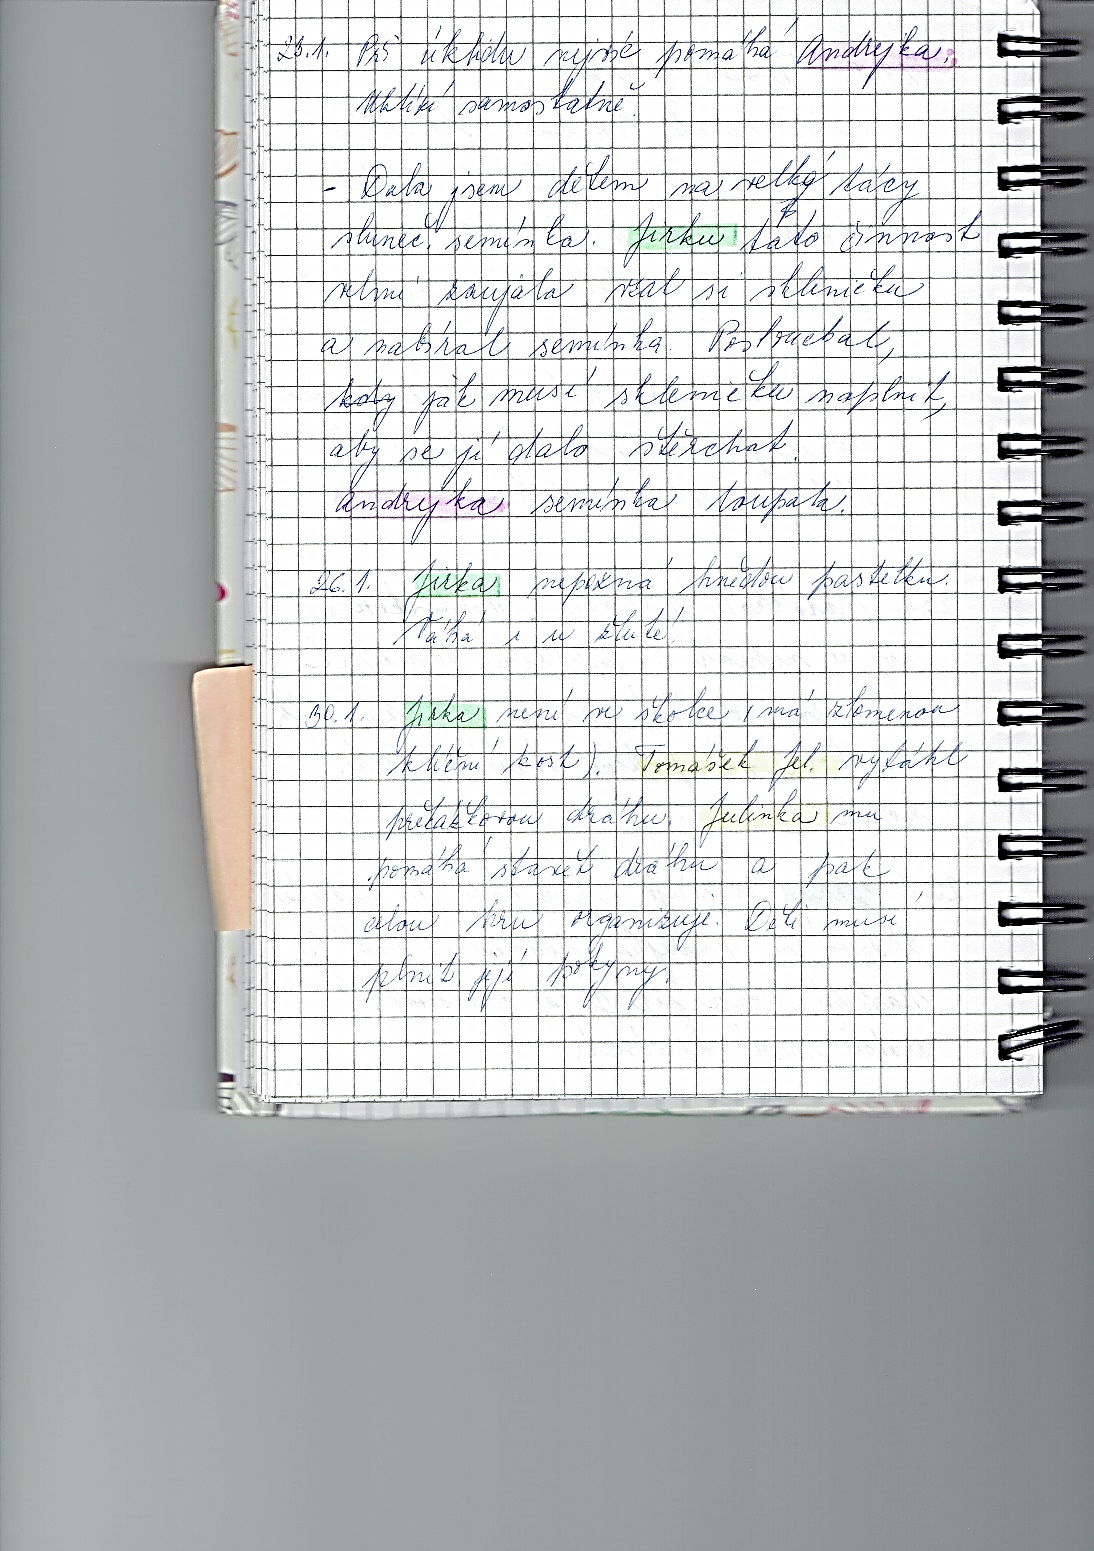 23.1. Při úklidu nejvíc pomáhá Andrejka.
Uklízí samostatně.
- Dala jsem dětem na velký tácy
sluneč. semínka. Jirku tato činnost
velmi zaujala vzal si skleničku
a nabíral semínka. Poslouchal,
kdy jak musí skleničku naplnit,
aby se jí dalo štěrchat.
Andrejka semínka loupala.
26.1. Jirka nepozná hnědou pastelku.
Váhá i u žluté!
30.1. Jirka není ve školce (má zlomenou
klíční kost). Tomášek Jel. vytáhl
překážkovou dráhu. Julinka mu
pomáhá stavět dráhu a pak
celou hru organizuje. Děti musí
plnit její pokyny.